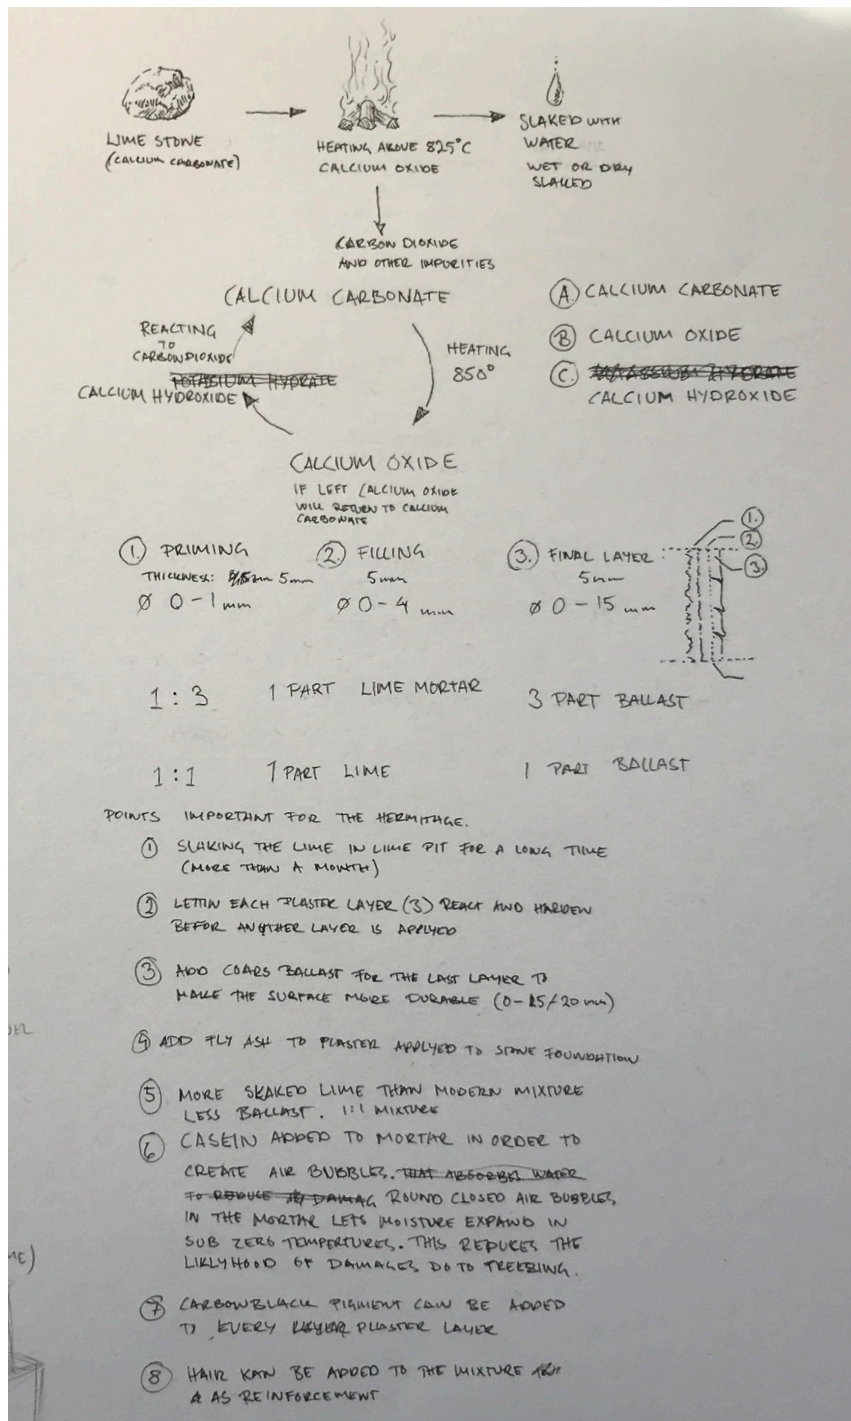 LIME STONE
(CALCIUM CARBONATE)
HEATING ABOVE 825°C
CALCIUM OXIDE
SLAKED WITH
WATER
WET OR DRY
SLAKED
CARBON DIOXIDE
AND OTHER IMPURITIES
CALCIUM CARBONATE
REACTING
TO
CARBONDIOXIDE
POTASIUM HYDRATE
CALCIUM HYDROXIDE
HEATING
850°
CALCIUM OXIDE
IF LEFT CALCIUM OXIDE
WILL RETURN TO CALCIUM
CARBONATE
A. CALCIUM CARBONATE
B CALCIUM OXIDE
C.
CALCIUM HYDROXIDE
1. PRIMING
THICKNESS: 5mm
Ø 0-1 mm
2. FILLING
5mm
Ø 0-4 mm
3. FINAL LAYER:
5mm
Ø 0-15 mm
1.
2.
3.
1:3 1 PART LIME MORTAR 3 PART BALLAST
1:1 1 PART LIME 1 PART BALLAST
POINTS IMPORTANT FOR THE HERMITAGE.
1 SLAKING THE LIME IN LIME PIT FOR A LONG TIME
(MORE THAN A MONTH)
2 LETTIN EACH PLASTER LAYER (3) REACT AND HARDEN
BEFOR ANOTHER LAYER IS APPLYED
3 ADD COARS BALLAST FOR THE LAST LAYER TO
MAKE THE SURFACE MORE DURABLE (0-15/20 mm)
4 ADD FLY ASH TO PLASTER APPLYED TO STONE FOUNDATION
5 MORE SLAKED LIME THAN MODERN MIXTURE
LESS BALLAST. 1:1 MIXTURE
6 CASEIN ADDED TO MORTAR IN ORDER TO
CREATE AIR BUBBLES. THAT ABSORBES WATER
TO REDUCE DAMAG ROUND CLOSED AIR BUBBLES
IN THE MORTAR LETS MOISTURE EXPAND IN
SUB ZERO TEMPERTURES. THIS REDUCES THE
LIKLYHOOD OF DAMAGES DO TO FREEZING.
7 CARBONBLACK PIGMENT CAN BE ADDED
TO EVERY PLASTER LAYER
8 HAIR KAN BE ADDED TO THE MIXTURE
AS REINFORCEMENT